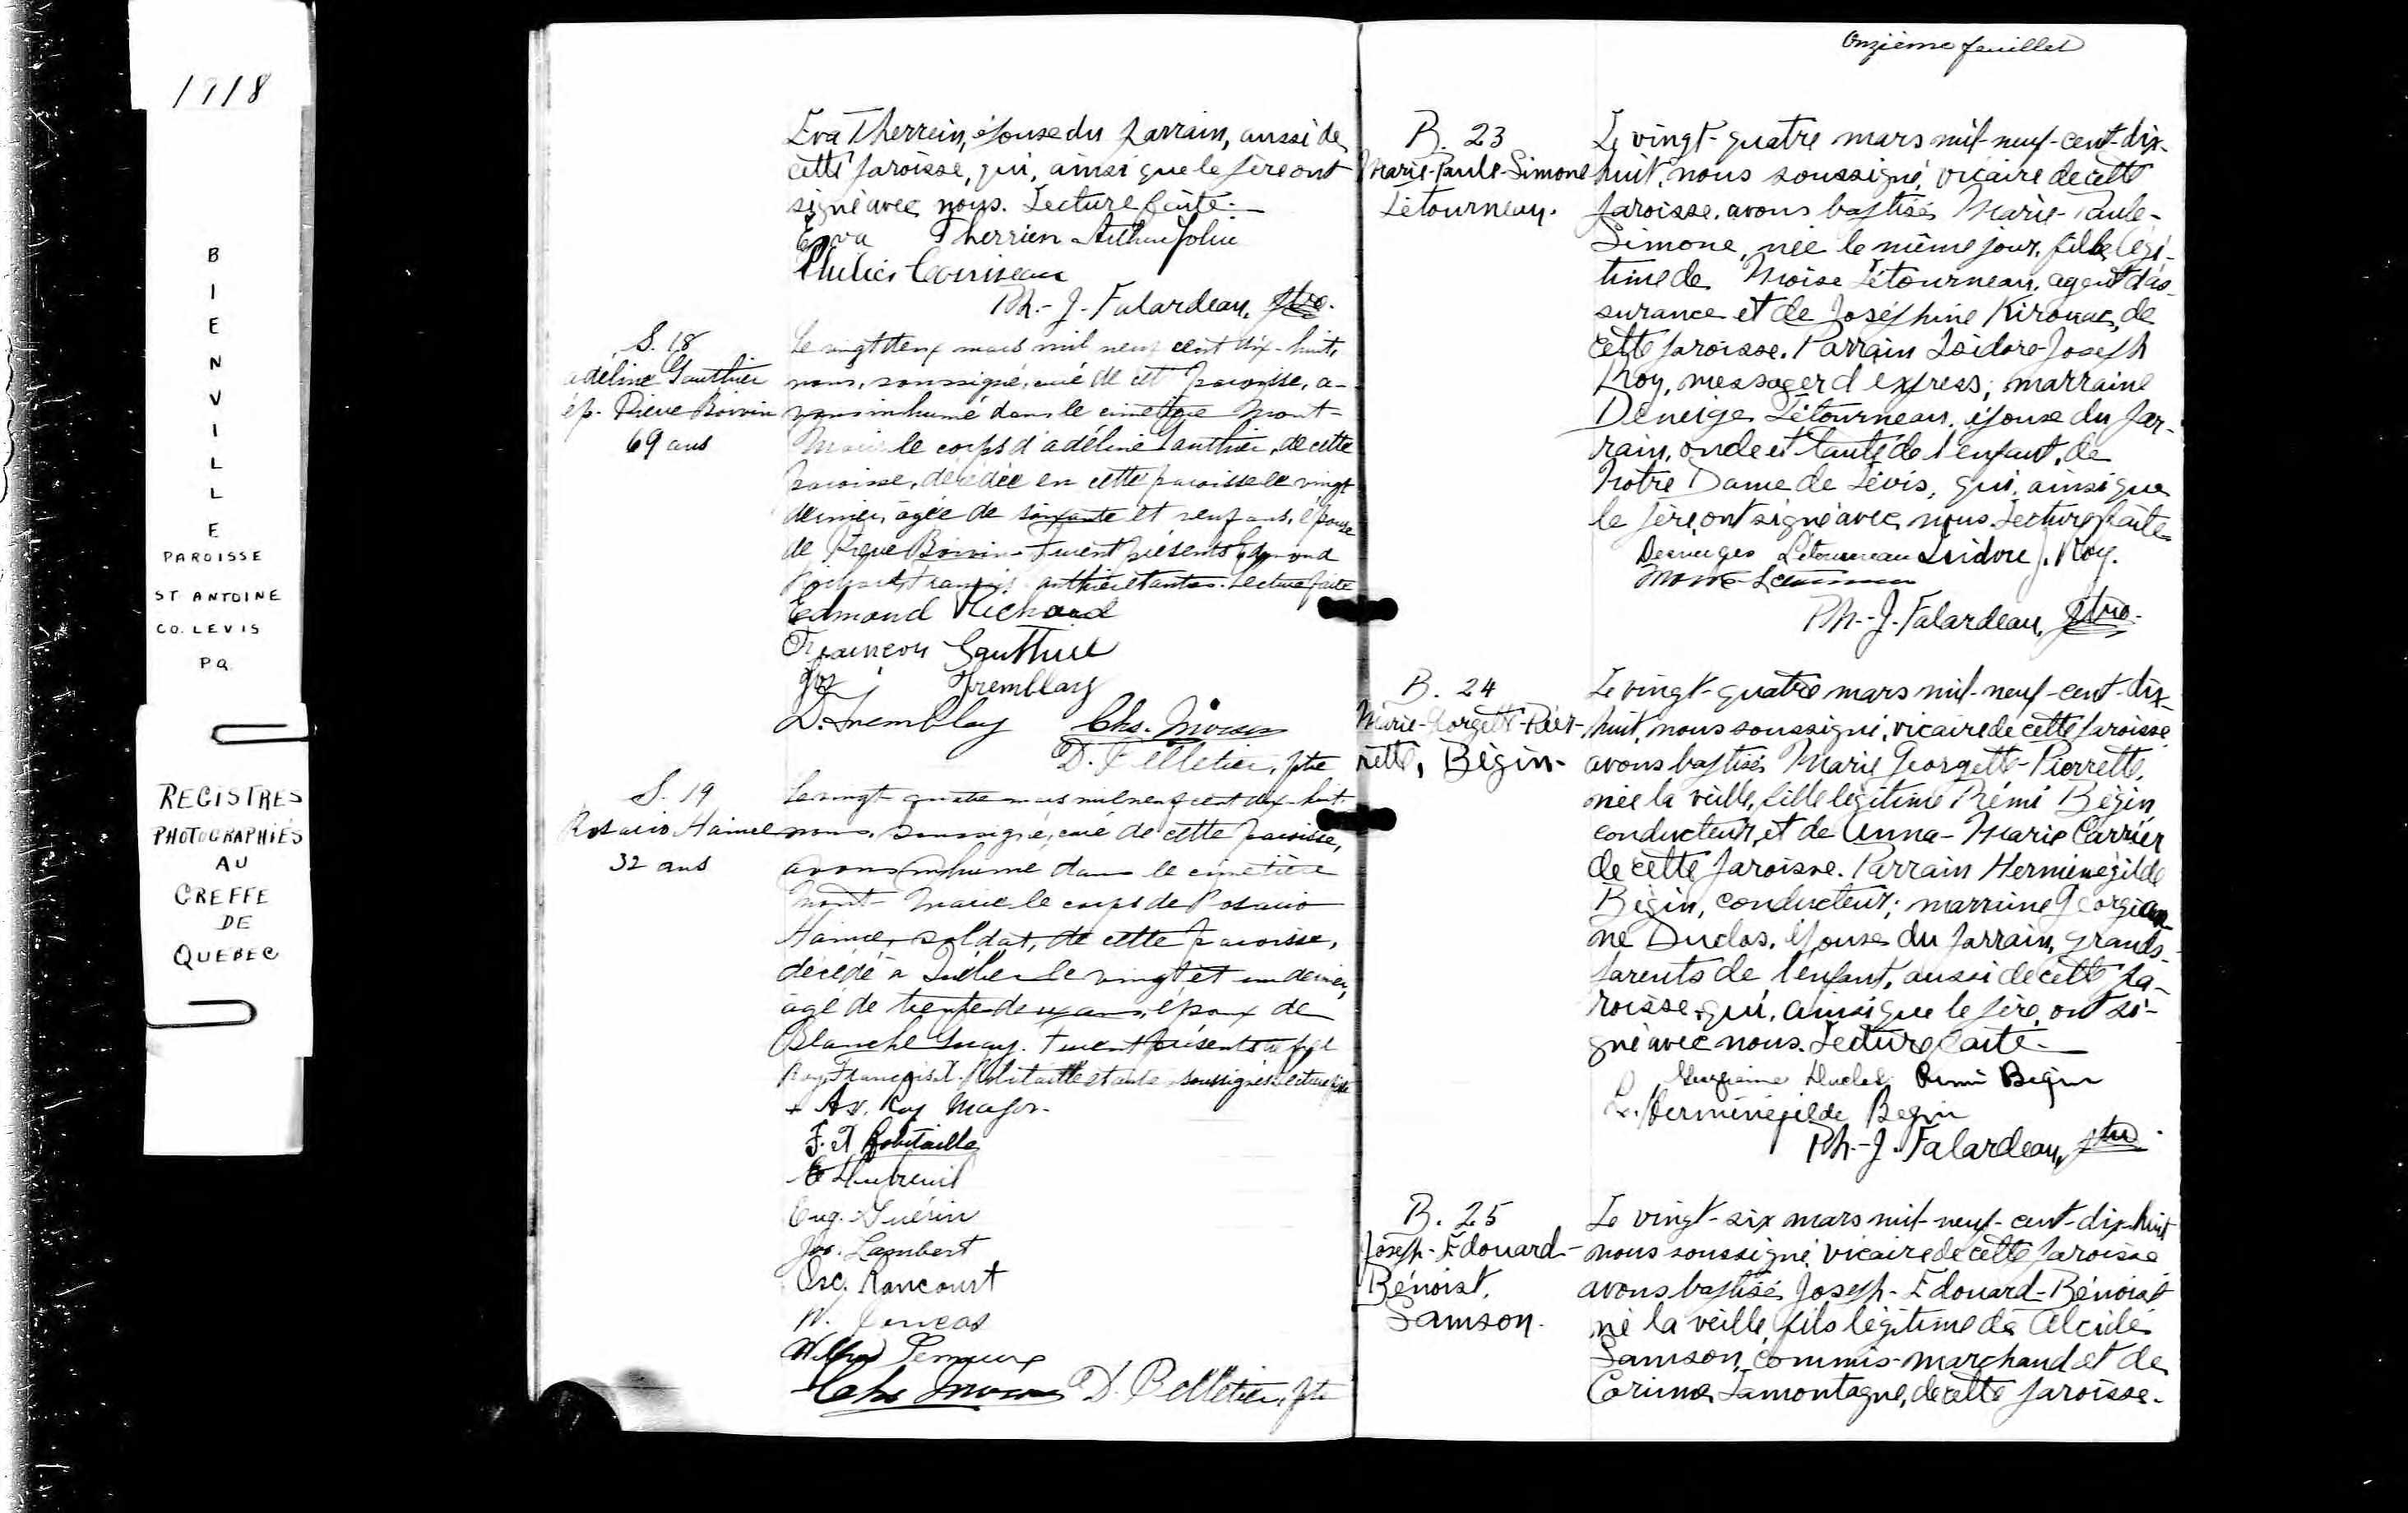 1918
BIENVILLE
PAROISSE
ST ANTOINE
CO. LEVIS
P.Q.
REGISTRES
PHOTOGRAPHIÉS
AU
GREFFE
DE
QUEBEC
Eva Therrein, épouse du parrain, aussi de
cette paroisse, qui, ainsi que le père ont
signé avec nous. Lecture faite.
Eva Therrien Arthur Jolin
Ph.-J. Falardeau, ptre.
S. 18
Adéline Gauthier
ép. Pierre Boivin
69 ans
Le vingt deux mars mil neuf cent dix-huit,
nous, soussigné, curé de cet paroisse, a-
vons inhumé dans le cimetière Mont-
Marie le corps d'Adéline Gauthier, de cette
paroisse, décédée en cette paroisse le vingt
dernier, âgée de soixante et neuf ans, épouse
de Pierre Boivin. Furent présents Edmond
Richard, François Gauthier et autres. Lecture faite
Edmond Richard
François Gauthier
Jos Tremblay
D. Tremblay Chs.
D. Pelletier, ptre
S. 19
Rosario Hamel
32 ans
Le vingt-quatre mars mil neuf cent dix-huit
nous, soussigné, curé de cette paroisse,
avons inhumé dans le cimetière
Mont-Marie le corps de Rosario
Hamel, soldat, de cette paroisse,
décédé à Québec le vingt et un dernier,
âgé de trente-deux ans, époux de
Blanche Guay. Furent présents
Roy, François X. Robitaille et autres soussignés. Lecture faite
Roy Major.
F. X Robitaille
E Dubreuil
Eug. Guérin
Jos. Lambert
Osc. Rancourt
N. Joncas
Wilfrid Lemieux
Chs D. Pelletier, ptre
Onzième feuillet
B. 23
Marie-Paule-Simone
Létourneau.
Le vingt-quatre mars mil-neuf-cent-dix-
huit, nous soussigné, vicaire de cette
paroisse, avons baptisés Marie-Paule-
Simone, née le même jour, fille légi-
time de Moïse Létourneau, agent d'as-
surance et de Joséphine Kirouac, de
cette paroisse. Parrain Isidore-Joseph
Roy, messager d'express; marraine
Deneige Létourneau, épouse du par-
rain, oncle et tante de l'enfant, de
Notre Dame de Lévis, qui, ainsi que
le père ont signé avec nous. Lecture faite
Desneiges Létourneau Isidore J. Roy.
Ph.-J. Falardeau, ptre.
B. 24
Marie-Georgette-Pier-
rette, Bégin.
Le vingt-quatre mars mil-neuf-cent-dix-
huit, nous soussigné, vicaire de cette paroisse
avons baptisés Marie Georgette-Pierrette,
née la veille, fille légitime Rémi Bégin,
conducteur, et de Anna-Marie Carrier
de cette paroisse. Parrain Herménégilde
Bégin, conducteur; marraine Georgian
ne Duclos, épouse du parrain, grands-
parents de l'enfant, aussi de cette pa-
roisse, qui, ainsi que le père, ont si-
gné avec nous. Lecture faite.
Duclos Rémi Bégin
L. Herménégilde Begin
Ph.-J. Falardeau, ptre.
B. 25
Joseph-Édouard-
Bénoist.
Samson.
Le vingt-six mars mil-neuf-cent-dix-huit
nous soussigné, vicaire de cette paroisse
avons baptisés Joseph-Édouard-Bénoist
né la veille, fils légitime de Alcide
Samson, commis-marchand et de
Corinne Lamontagne, de cette paroisse.